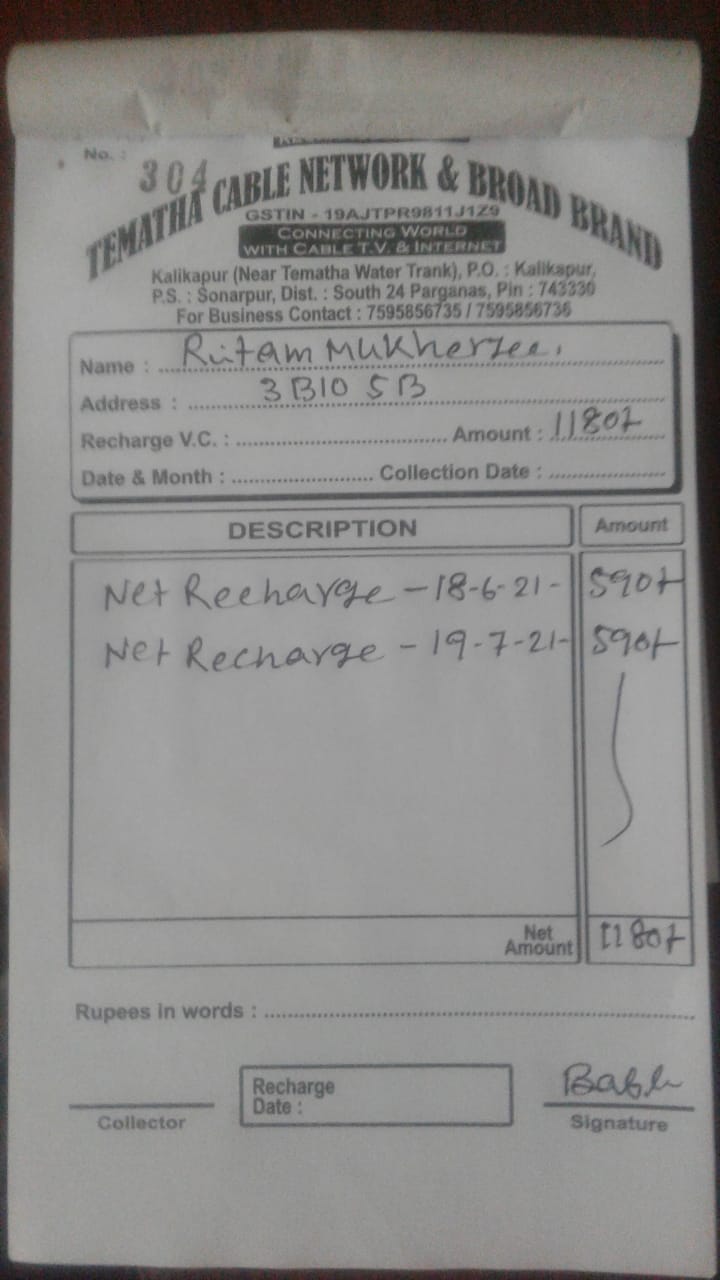 No. : 304
TEMATHA CABLE NETWORK & BROAD BRAND
GSTIN - 19AJTPR9811J1Z9
CONNECTING WORLD
WITH CABLE T.V. & INTERNET
Kalikapur (Near Tematha Water Trank), P.O. : Kalikapur,
P.S. : Sonarpur, Dist. : South 24 Parganas, Pin : 743330
For Business Contact : 7595856735 / 7595856736
Name : Ritam Mukherjee.
Address : 3B10 5B
Recharge V.C. : Amount : 1180/-
Date & Month : Collection Date :
DESCRIPTION Amount
Net Recharge - 18-6-21- 590/-
Net Recharge - 19-7-21- 590/-
Net Amount 1180/-
Rupees in words :
Collector
Recharge Date :
Signature